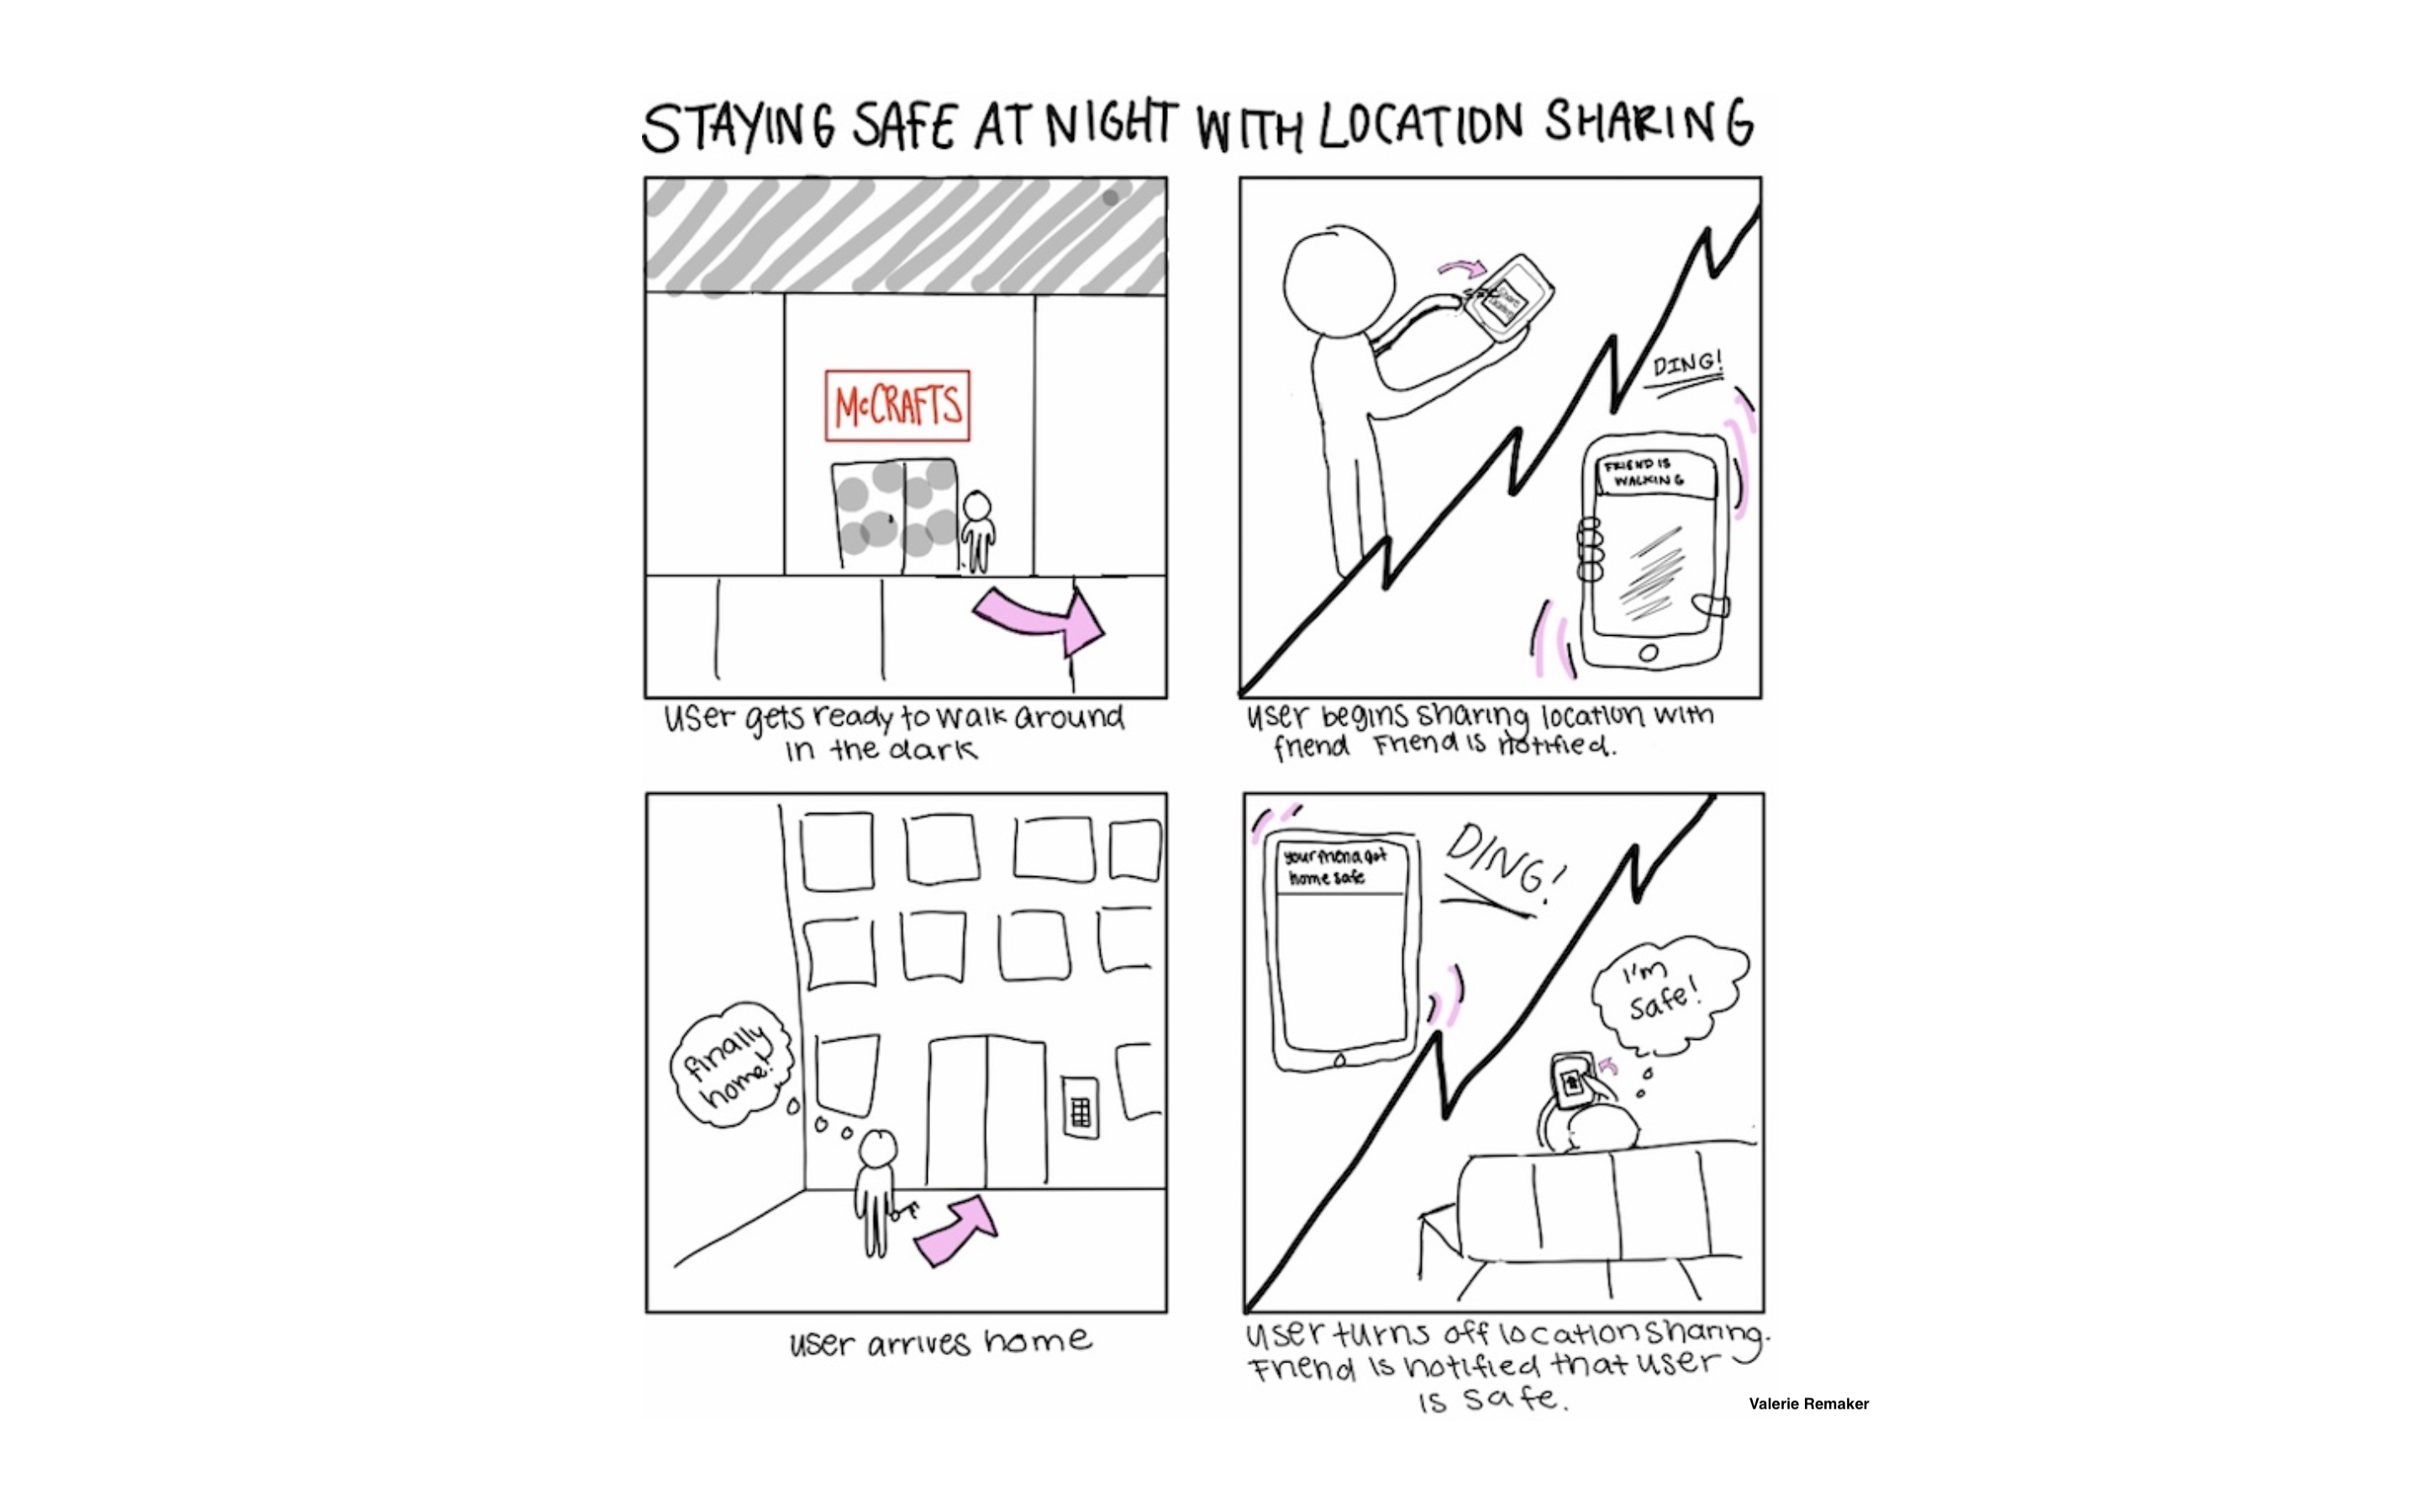 STAYING SAFE AT NIGHT WITH LOCATION SHARING
McCRAFTS
user gets ready to walk around
in the dark
Share
Location
DING!
FRIEND IS
WALKING
user begins sharing location with
friend Friend is notified.
finally
home!
user arrives home
your friend got
home safe
DING!
I'm
safe!
user turns off location sharing.
Friend is notified that user
is safe.
Valerie Remaker